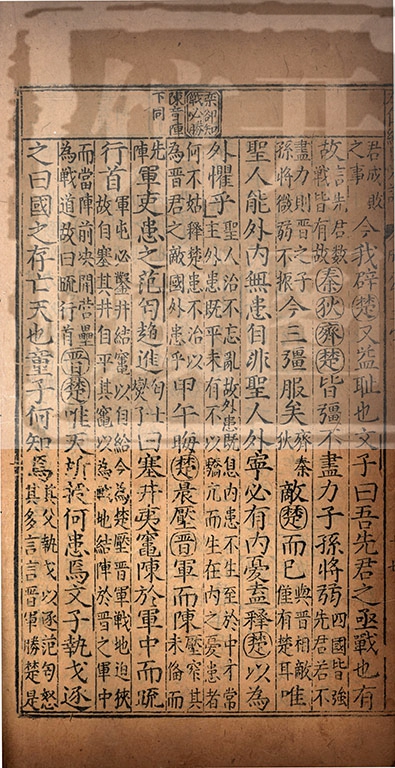 欒郤知戰必勝
陳音陣下同
君成敗之事今我辟楚又益恥也文子曰吾先君之亟戰也有
故言先君數戰皆有故秦狄齊楚皆彊不盡力子孫將弱四國皆強先君若不
盡力則晉之子孫將微弱不振今三彊服矣齊秦狄敵楚而已與晉相敵僅有楚耳唯
聖人能外內無患自非聖人外寧必有內憂盍釋楚以為
外懼乎聖人治不忘亂故外患既息內患不生至於中才常主外患既平未有不以驕亢而生在內之憂患者
何不姑釋楚患不治以為晉君之敵國外患乎甲午晦楚晨壓晉軍而陳壓窄其未備而
先陣軍吏患之范匄趨進匄士燮子曰塞井夷竈陳於軍中而疏
行首軍屯必鑿井結竈以自給今為楚壓晉軍戰地迫狹故自塞其井自平其竈以為戰地結陣於晉之軍中
而當陣前決開營壘為戰道故曰疏行首晉楚唯天所授何患焉文子執戈逐
之曰國之存亡天也童子何知焉其父執戈以逐范匄怒其多言言晉軍勝楚是